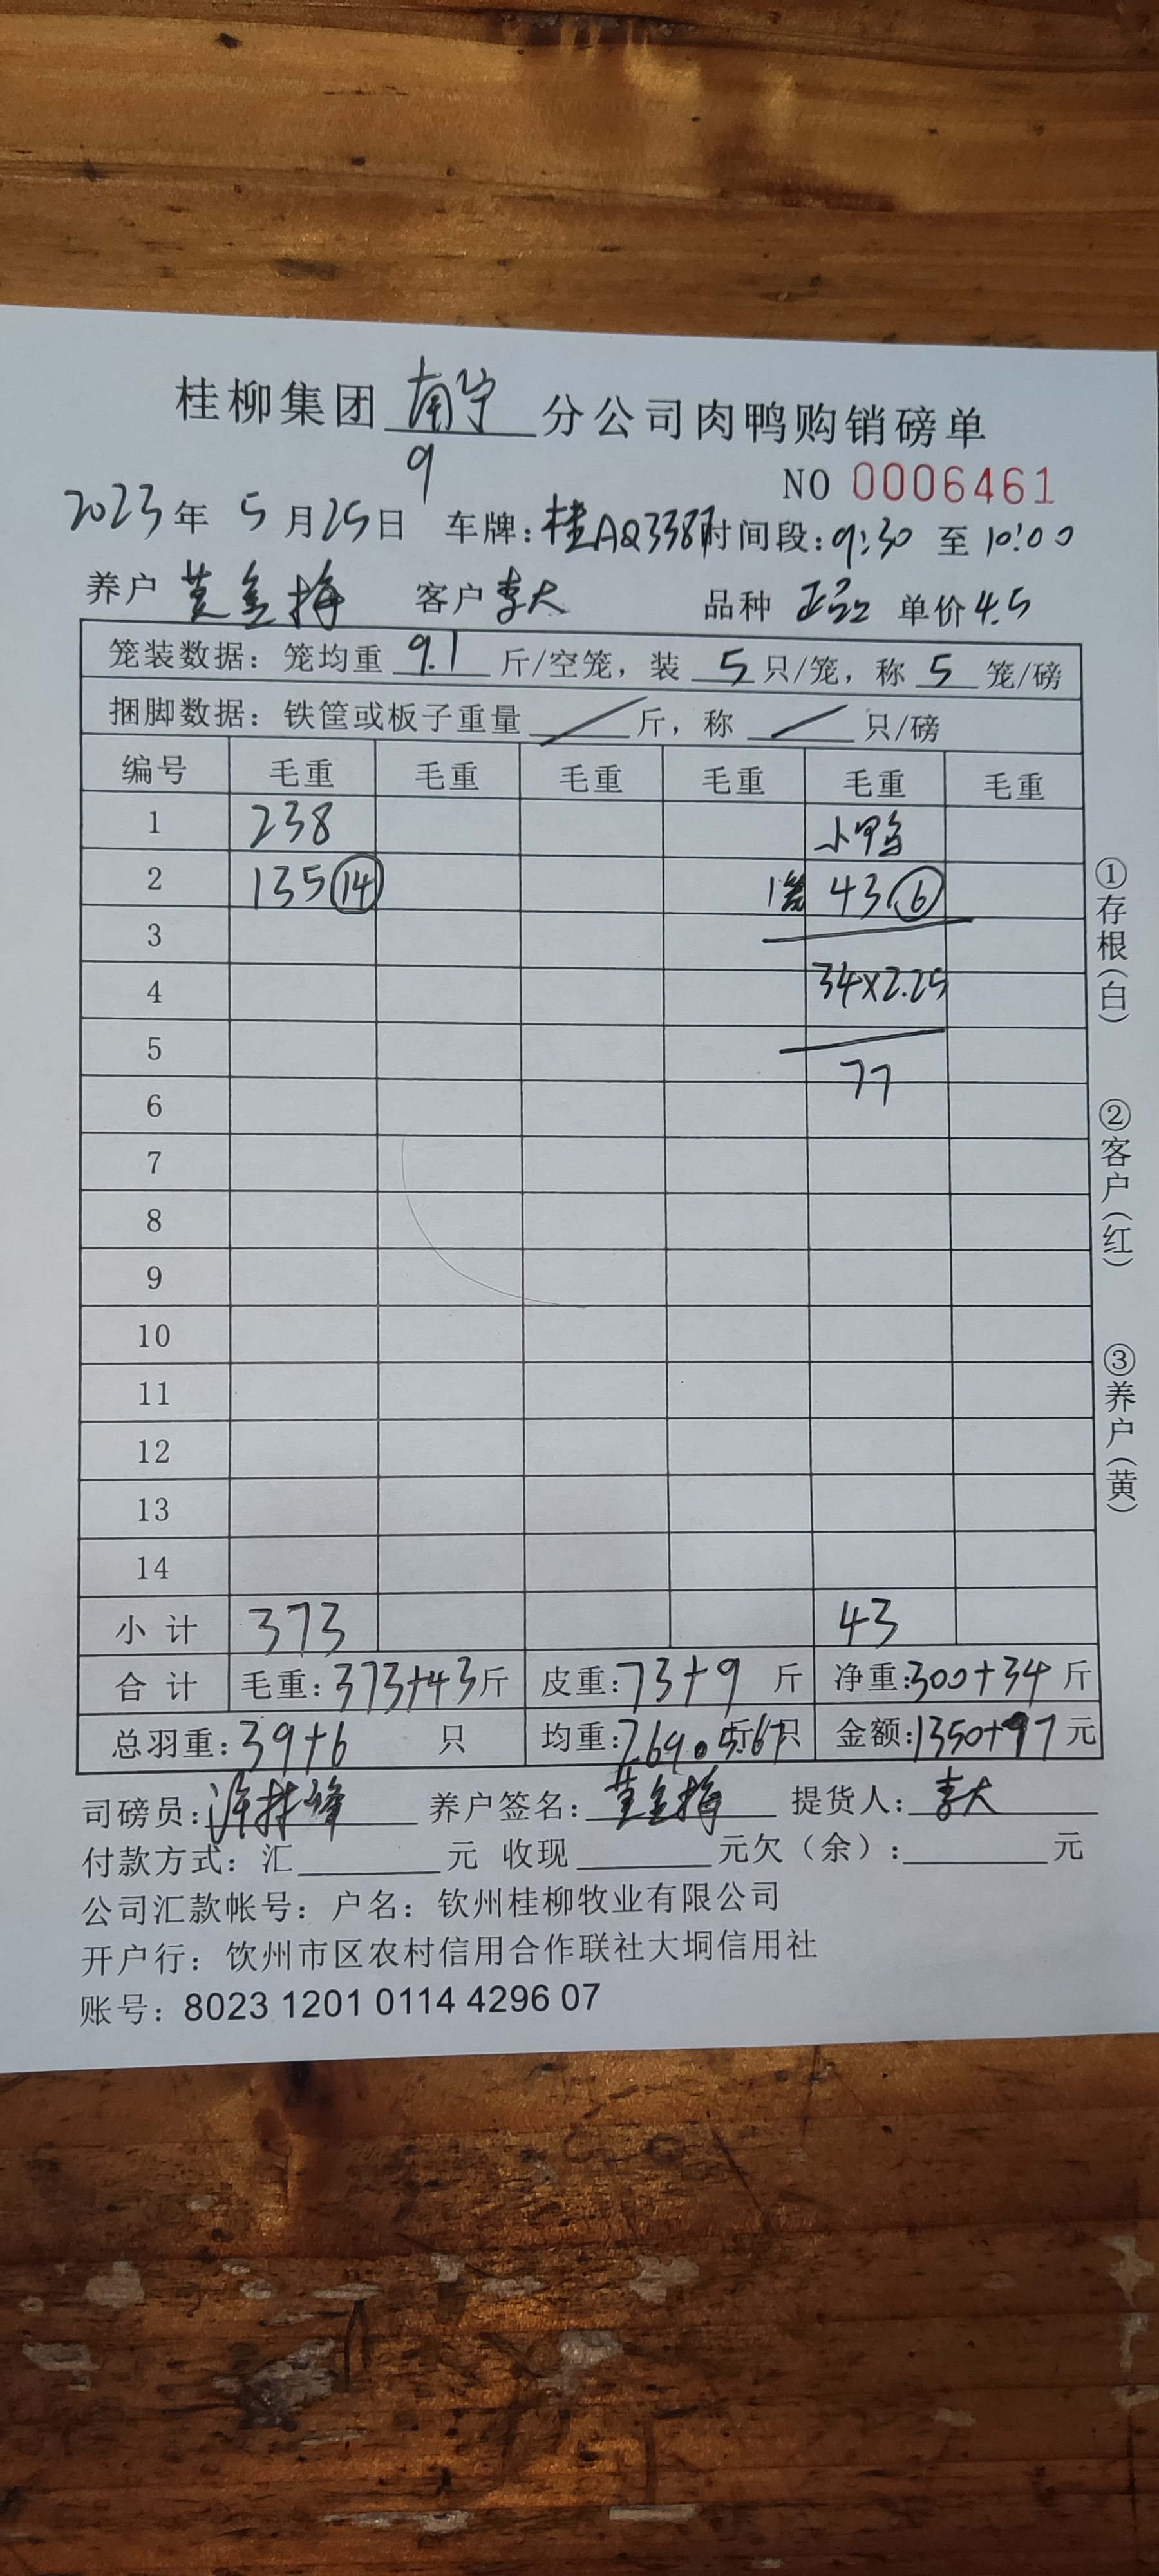 桂柳集团南宁分公司肉鸭购销磅单
9
NO 0006461
2023年 5月25日 车牌:桂AQ3387 时间段:9:30 至 10:00
养户 黄金梅 客户 李大 品种 正品 单价 4.5
笼装数据:笼均重 9.1 斤/空笼,装 5 只/笼,称 5 笼/磅
捆脚数据:铁筐或板子重量 / 斤,称 / 只/磅
编号 毛重 毛重 毛重 毛重 毛重 毛重
1 238 小鸭
2 135 14 1笼 43 6
3
4 34×2.25
5
6 77
7
8
9
10
11
12
13
14
小计 373 43
合计 毛重:373+43斤 皮重:73+9 斤 净重:300+34 斤
总羽重:39+6 只 均重:7.69 5.67 斤/只 金额:1350+77 元
司磅员:许林峰 养户签名:黄金梅 提货人:李大
付款方式:汇 元 收现 元欠(余): 元
公司汇款帐号:户名:钦州桂柳牧业有限公司
开户行:饮州市区农村信用合作联社大垌信用社
账号:8023 1201 0114 4296 07
①存根(白)
②客户(红)
③养户(黄)